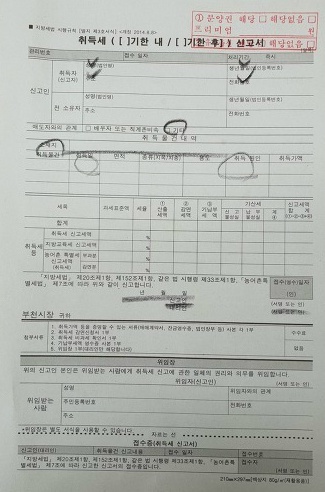 ① 분양권 해당 □ 해당없음 □
프리미엄 원
해당없음 □
■ 지방세법 시행규칙 [별지 제3호서식] <개정 2014.8.8>
취득세 ( [ ]기한 내 / [ ]기한 후 ) 신고서
관리번호 접수일자 처리기간 즉시
신고인 취득자 (신고자)
전 소유자 성명(법인명) 생년월일(법인등록번호)
주소 전화번호
매도자와의 관계 □ 배우자 또는 직계존비속 □ 기타
취득물건내역
소재지
취득물건 취득일 면적 종류(지목/차종) 용도 취득 원인 취득가액
세목 과세표준액 세율 ① 산출세액 ② 감면세액 ③ 기납부세액 가산세 신고세액 합계
합계
취득세 신고세액 %
지방교육세 신고세액 %
농어촌특별세 신고세액 부과분 %
(취득세) 감면분 %
「지방세법」 제20조제1항, 제152조제1항, 같은 법 시행령 제33조제1항, 「농어촌특별세법」 제7조에 따라 위와 같이 신고합니다.
접수(영수)일자
(인)
년 월 일
신고인 (서명 또는 인)
부천시장 귀하
첨부서류 수수료
1. 취득가액 등을 증명할 수 있는 서류(매매계약서, 잔금영수증, 법인장부 등) 사본 각 1부
2. 취득세 감면신청서 1부
3. 취득세 비과세 확인서 1부
4. 기납부세액 영수증 사본 1부
5. 위임장 1부(대리인만 해당합니다)
없음
위임장
위의 신고인 본인은 위임받는 사람에게 취득세 신고에 관한 일체의 권리와 의무를 위임합니다.
위임자(신고인) (서명 또는 인)
위임받는 사람 성명 위임자와의 관계
주민등록번호 전화번호
주소
*위임장은 별도 서식을 사용할 수 있습니다.
자르는 선
접수증(취득세 신고서)
신고인(대리인) 취득물건 신고내용 접수 일자 접수번호
「지방세법」 제20조제1항, 제152조제1항, 같은 법 시행령 제33조제1항, 「농어촌특별세법」 제7조에 따라 신고한 신고서의 접수증입니다.
접수자 (서명 또는 인)
210㎜×297㎜[백상지 80g/㎡(재활용품)]